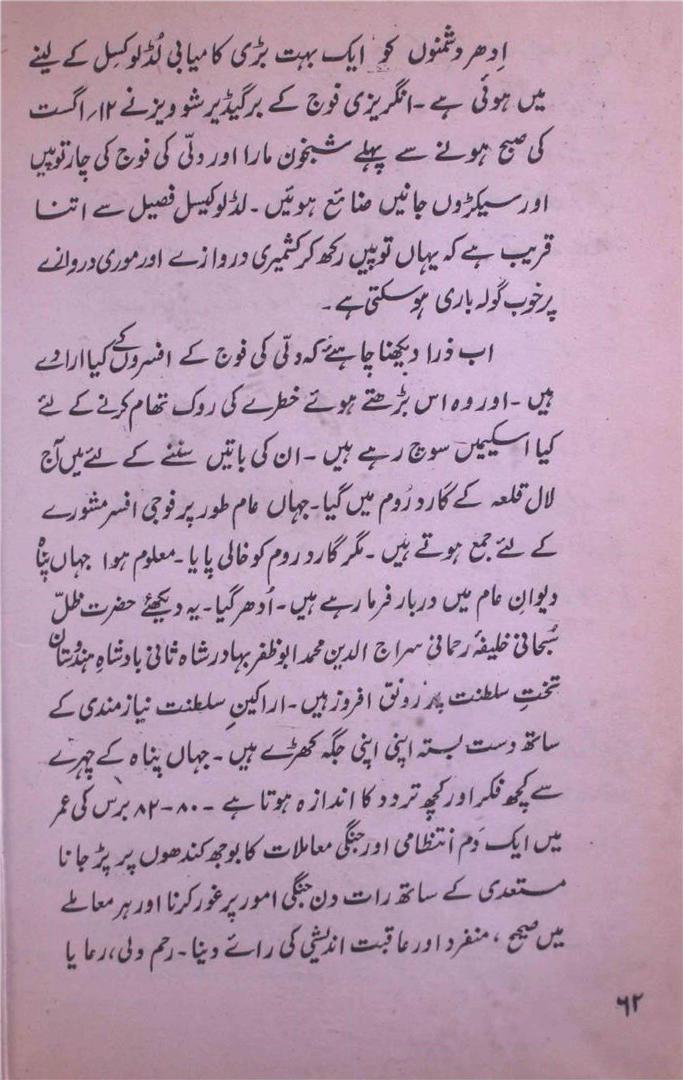 اِدھر دشمنوں کو ایک بہت بڑی کامیابی لُڈلوکسل کے لینے
میں ہوئی ہے ۔ انگریزی فوج کے برگیڈیر شوویز نے ۱۲؍ اگست
کی صبح ہونے سے پہلے شبخون مارا اور دلّی کی فوج کی چار توپیں
اور سیکڑوں جانیں ضائع ہوئیں ۔ لڈلوکیسل فصیل سے اتنا
قریب ہے کہ یہاں توپیں رکھ کر کشمیری دروازے اور موری دروازے
پر خوب گولہ باری ہو سکتی ہے ۔
اب ذرا دیکھنا چاہئے کہ دلّی کی فوج کے افسروں کے کیا ارادے
ہیں ۔ اور وہ اس بڑھتے ہوئے خطرے کی روک تھام کرنے کے لئے
کیا اسکیمیں سوچ رہے ہیں ۔ ان کی باتیں سننے کے لئے میں آج
لال قلعہ کے گارد رُوم میں گیا ۔ جہاں عام طور پر فوجی افسر مشورے
کے لئے جمع ہوتے ہیں ۔ مگر گارد روم کو خالی پایا ۔ معلوم ہوا جہاں پناہ
دیوانِ عام میں دربار فرما رہے ہیں ۔ اُدھر گیا ۔ یہ دیکھئے حضرت ظلّ
سُبحانی خلیفۂ رحمانی سراج الدین محمد ابوظفر بہادر شاہ ثانی بادشاہِ ہندوستان
تختِ سلطنت پر رونق افروز ہیں ۔ اراکینِ سلطنت نیازمندی کے
ساتھ دست بستہ اپنی اپنی جگہ کھڑے ہیں ۔ جہاں پناہ کے چہرے
سے کچھ فکر اور کچھ تردد کا اندازہ ہوتا ہے ۔ ۸۰-۸۲ برس کی عمر
میں ایک دَم انتظامی اور جنگی معاملات کا بوجھ کندھوں پر پڑ جانا
مستعدی کے ساتھ رات دن جنگی امور پر غور کرنا اور ہر معاملے
میں صحیح ، منفرد اور عاقبت اندیشی کی رائے دینا ۔ رحم دلی ، رعایا
۶۲